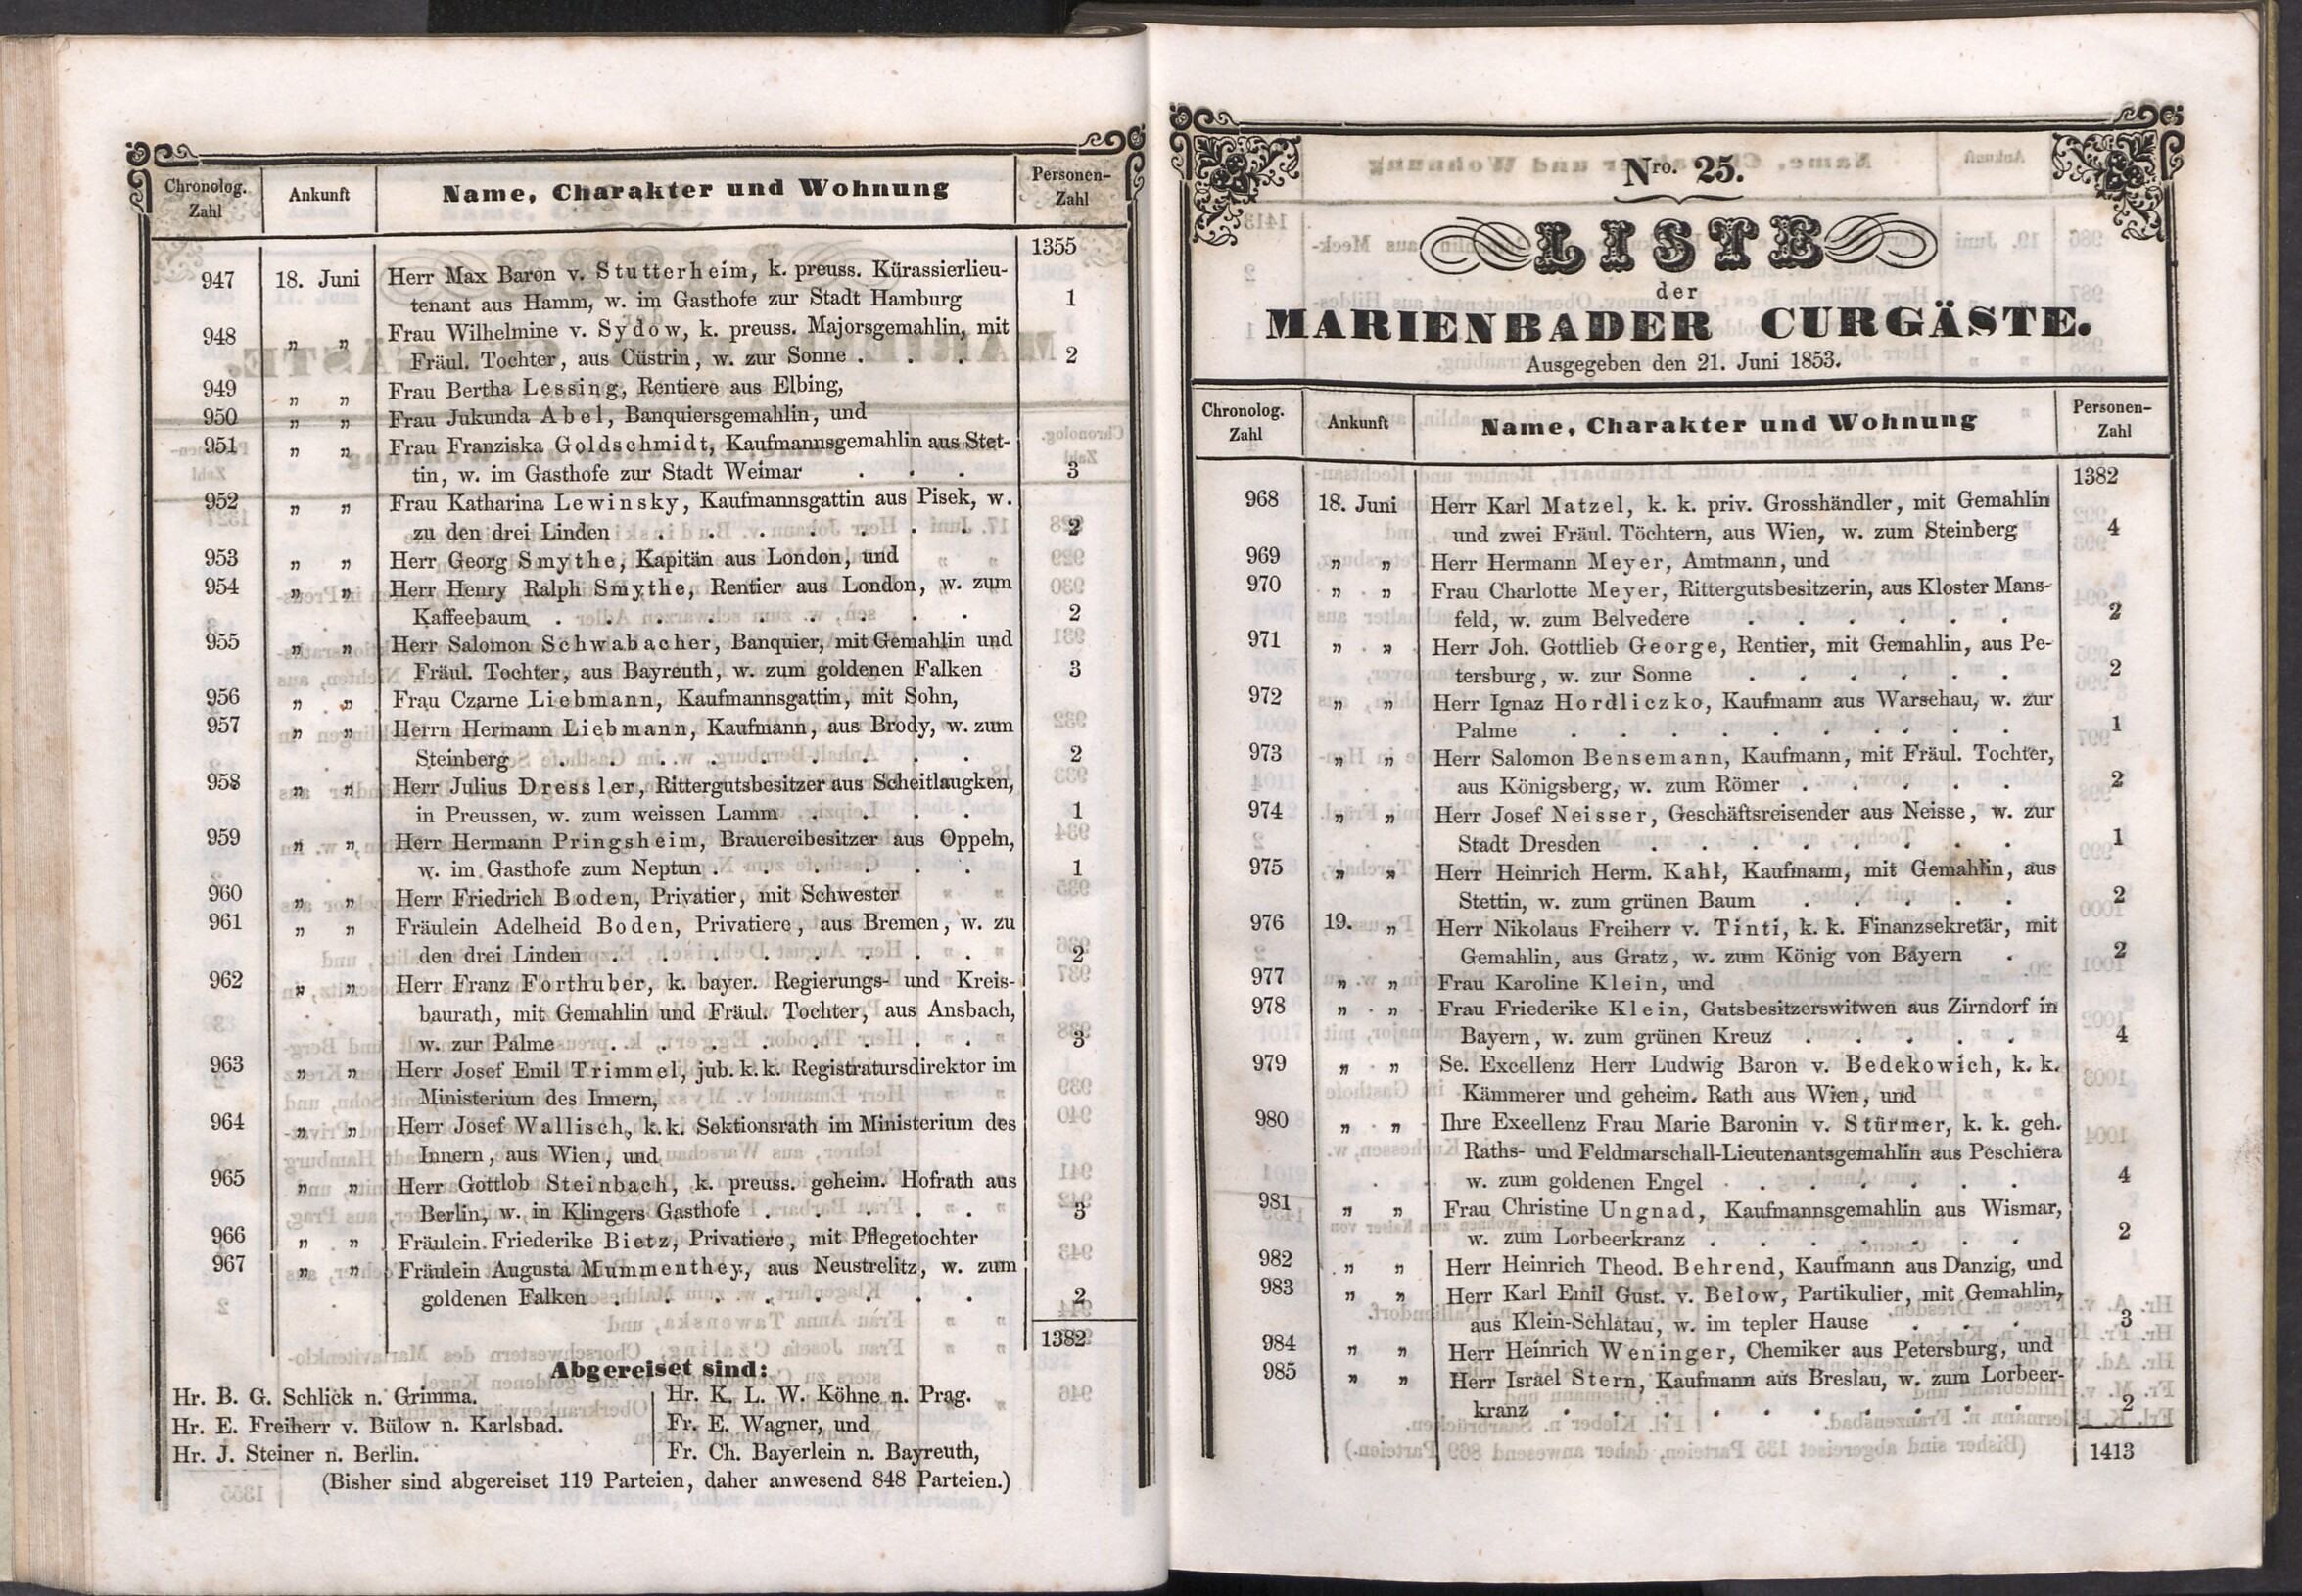 Chronolog. Zahl | Ankunft | Name, Charakter und Wohnung | Personen-Zahl
1355
947 18. Juni Herr Max Baron v. Stutterheim, k. preuss. Kürassierlieu-
tenant aus Hamm, w. im Gasthofe zur Stadt Hamburg 1
948 „ „ Frau Wilhelmine v. Sydow, k. preuss. Majorsgemahlin, mit
Fräul. Tochter, aus Cüstrin, w. zur Sonne . . . 2
949 „ „ Frau Bertha Lessing, Rentiere aus Elbing,
950 „ „ Frau Jukunda Abel, Banquiersgemahlin, und
951 „ „ Frau Franziska Goldschmidt, Kaufmannsgemahlin aus Stet-
tin, w. im Gasthofe zur Stadt Weimar . . . 3
952 „ „ Frau Katharina Lewinsky, Kaufmannsgattin aus Pisek, w.
zu den drei Linden . . . . . . . 2
953 „ „ Herr Georg Smythe, Kapitän aus London, und
954 „ „ Herr Henry Ralph Smythe, Rentier aus London, w. zum
Kaffeebaum . . . . . . . . . 2
955 „ „ Herr Salomon Schwabacher, Banquier, mit Gemahlin und
Fräul. Tochter, aus Bayreuth, w. zum goldenen Falken 3
956 „ „ Frau Czarne Liebmann, Kaufmannsgattin, mit Sohn,
957 „ „ Herrn Hermann Liebmann, Kaufmann, aus Brody, w. zum
Steinberg . . . . . . . . . 2
958 „ „ Herr Julius Dressler, Rittergutsbesitzer aus Scheitlaugken,
in Preussen, w. zum weissen Lamm . . . . 1
959 „ „ Herr Hermann Pringsheim, Brauereibesitzer aus Oppeln,
w. im Gasthofe zum Neptun . . . . . . 1
960 „ „ Herr Friedrich Boden, Privatier, mit Schwester
961 „ „ Fräulein Adelheid Boden, Privatiere, aus Bremen, w. zu
den drei Linden . . . . . . . . 2
962 „ „ Herr Franz Forthuber, k. bayer. Regierungs- und Kreis-
baurath, mit Gemahlin und Fräul. Tochter, aus Ansbach,
w. zur Palme . . . . . . . . 3
963 „ „ Herr Josef Emil Trimmel, jub. k. k. Registratursdirektor im
Ministerium des Innern,
964 „ „ Herr Josef Wallisch, k. k. Sektionsrath im Ministerium des
Innern, aus Wien, und
965 „ „ Herr Gottlob Steinbach, k. preuss. geheim. Hofrath aus
Berlin, w. in Klingers Gasthofe . . . . . 3
966 „ „ Fräulein Friederike Bietz, Privatiere, mit Pflegetochter
967 „ „ Fräulein Augusta Mummenthey, aus Neustrelitz, w. zum
goldenen Falken . . . . . . . . 2
1382
Abgereiset sind:
Hr. B. G. Schlick n. Grimma.
Hr. E. Freiherr v. Bülow n. Karlsbad.
Hr. J. Steiner n. Berlin.
Hr. K. L. W. Köhne n. Prag.
Fr. E. Wagner, und
Fr. Ch. Bayerlein n. Bayreuth,
(Bisher sind abgereiset 119 Parteien, daher anwesend 848 Parteien.)
Nro. 25.
LISTE
der
MARIENBADER CURGÄSTE.
Ausgegeben den 21. Juni 1853.
Chronolog. Zahl | Ankunft | Name, Charakter und Wohnung | Personen-Zahl
1382
968 18. Juni Herr Karl Matzel, k. k. priv. Grosshändler, mit Gemahlin
und zwei Fräul. Töchtern, aus Wien, w. zum Steinberg 4
969 „ „ Herr Hermann Meyer, Amtmann, und
970 „ „ Frau Charlotte Meyer, Rittergutsbesitzerin, aus Kloster Mans-
feld, w. zum Belvedere . . . . . . 2
971 „ „ Herr Joh. Gottlieb George, Rentier, mit Gemahlin, aus Pe-
tersburg, w. zur Sonne . . . . . . 2
972 „ „ Herr Ignaz Hordliczko, Kaufmann aus Warschau, w. zur
Palme . . . . . . . . . 1
973 „ „ Herr Salomon Bensemann, Kaufmann, mit Fräul. Tochter,
aus Königsberg, w. zum Römer . . . . . 2
974 „ „ Herr Josef Neisser, Geschäftsreisender aus Neisse, w. zur
Stadt Dresden . . . . . . . . 1
975 „ „ Herr Heinrich Herm. Kahl, Kaufmann, mit Gemahlin, aus
Stettin, w. zum grünen Baum . . . . . 2
976 19. „ Herr Nikolaus Freiherr v. Tinti, k. k. Finanzsekretär, mit
Gemahlin, aus Gratz, w. zum König von Bayern . 2
977 „ „ Frau Karoline Klein, und
978 „ „ Frau Friederike Klein, Gutsbesitzerswitwen aus Zirndorf in
Bayern, w. zum grünen Kreuz . . . . . 4
979 „ „ Se. Excellenz Herr Ludwig Baron v. Bedekowich, k. k.
Kämmerer und geheim. Rath aus Wien, und
980 „ „ Ihre Exeellenz Frau Marie Baronin v. Stürmer, k. k. geh.
Raths- und Feldmarschall-Lieutenantsgemahlin aus Peschiera
w. zum goldenen Engel . . . . . . 4
981 „ „ Frau Christine Ungnad, Kaufmannsgemahlin aus Wismar,
w. zum Lorbeerkranz . . . . . . . 2
982 „ „ Herr Heinrich Theod. Behrend, Kaufmann aus Danzig, und
983 „ „ Herr Karl Emil Gust. v. Below, Partikulier, mit Gemahlin,
aus Klein-Schlatau, w. im tepler Hause . . . 3
984 „ „ Herr Heinrich Weninger, Chemiker aus Petersburg, und
985 „ „ Herr Israel Stern, Kaufmann aus Breslau, w. zum Lorbeer-
kranz . . . . . . . . . 2
1413